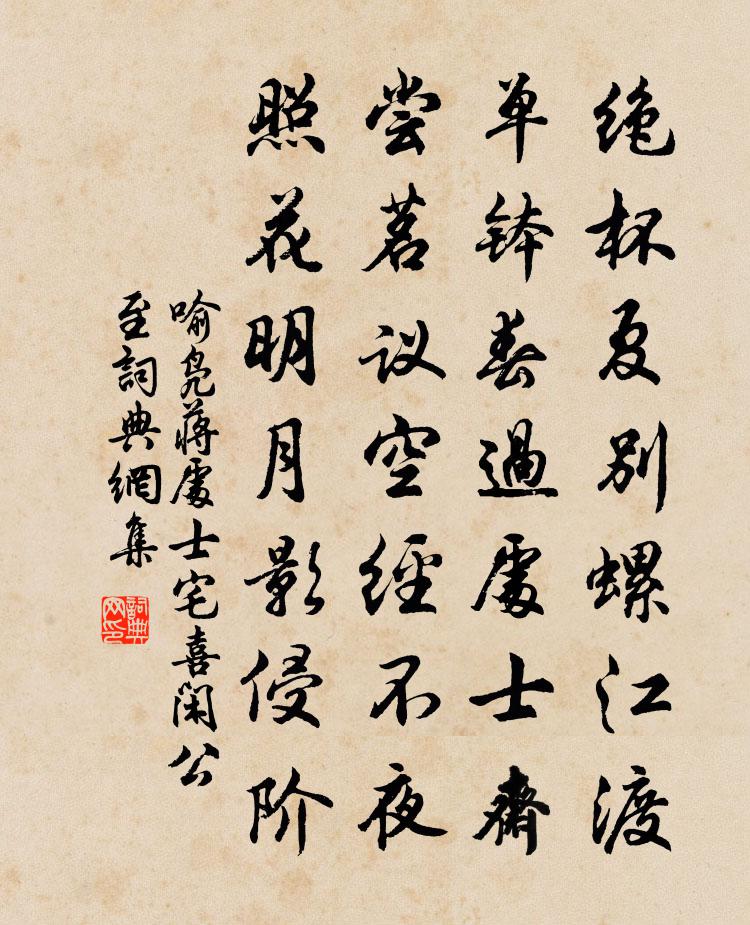 绝杯夏别螺江渡
单钵春過處士齋
尝茗议空經不夜
照花明月影侵阶
喻凫蒋處士宅喜閑公
至詞典網集
詞典网印